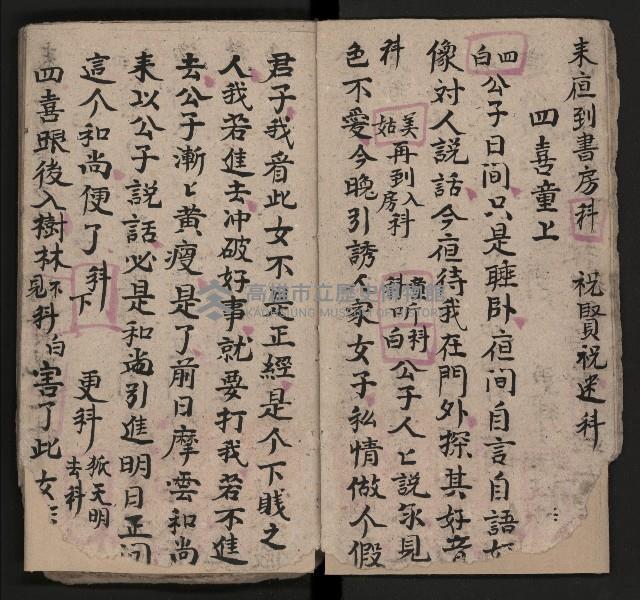 来夜到書房科　祝賢祝迷科
四喜童上
四白公子日间只是睡卧夜间自言自語好
像对人説話今夜待我在門外探其好音
科 美姑再到入房科 听科 科白公子人匕説你見
色不愛今晚引誘人家女子私情做个假
君子我看此女不是正經是个下賎之
人我若進去冲破好事就要打我若不進
去公子漸匕黄瘦是了前日摩雲和尚
来以公子説話必是和尚引進明日正间
這个和尚便了科下 更科 狐天明去科
四喜跟後入樹林不見科白害了此女
高雄市立歷史博物館
KAOHSIUNG MUSEUM OF HISTORY